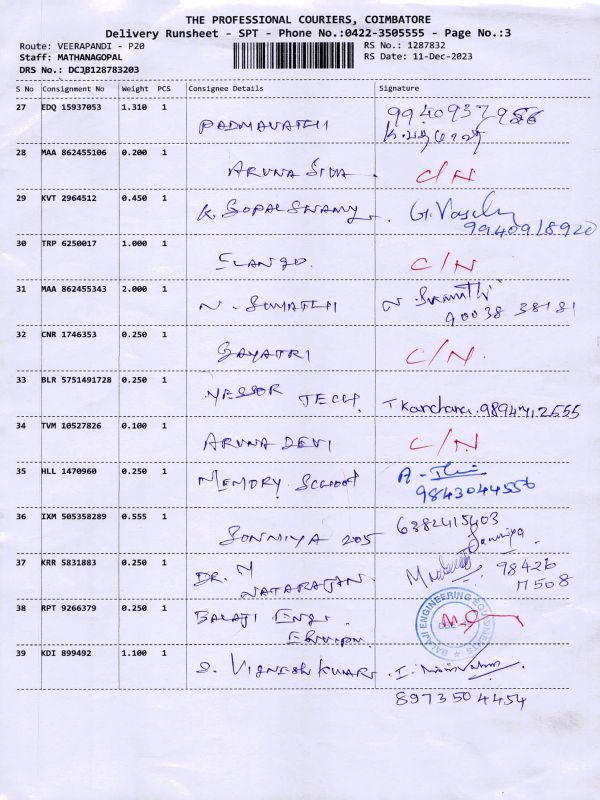 THE PROFESSIONAL COURIERS, COIMBATORE
Delivery Runsheet - SPT - Phone No.:0422-3505555 - Page No.:3
Route: VEERAPANDI - P20
RS No.: 1287832
Staff: MATHANAGOPAL
RS Date: 11-Dec-2023
DRS No.: DCJB128783203
S No Consignment No Weight PCS Consignee Details Signature
27 EDQ 15937053 1.310 1
PADMAVATHI
28 MAA 862455106 0.200 1
ARUNA SIVA C/N
29 KVT 2964512 0.450 1
K. GOPAL SWAMY
9940918920
30 TRP 6250017 1.000 1
ELANGO. C/N
31 MAA 862455343 2.000 1
N. SUMATHI
90038 38181
32 CNR 1746353 0.250 1
GAYATRI C/N.
33 BLR 5751491728 0.250 1
TECH.
34 TVM 10527826 0.100 1
ARUNA DEVI C/N
35 HLL 1470960 0.250 1
MEMORY School
9843044556
36 IXM 505358289 0.555 1
SOWMIYA 205 6382415403
Sowmiya
37 KRR 5831883 0.250 1
DR. N
NATARAJAN
98426
38 RPT 9266379 0.250 1
BALAJI Engi.
BALAJI ENGINEERING EQUIPMENTS
39 KDI 899492 1.100 1
S. VIGNESH KUMAR
8973504454